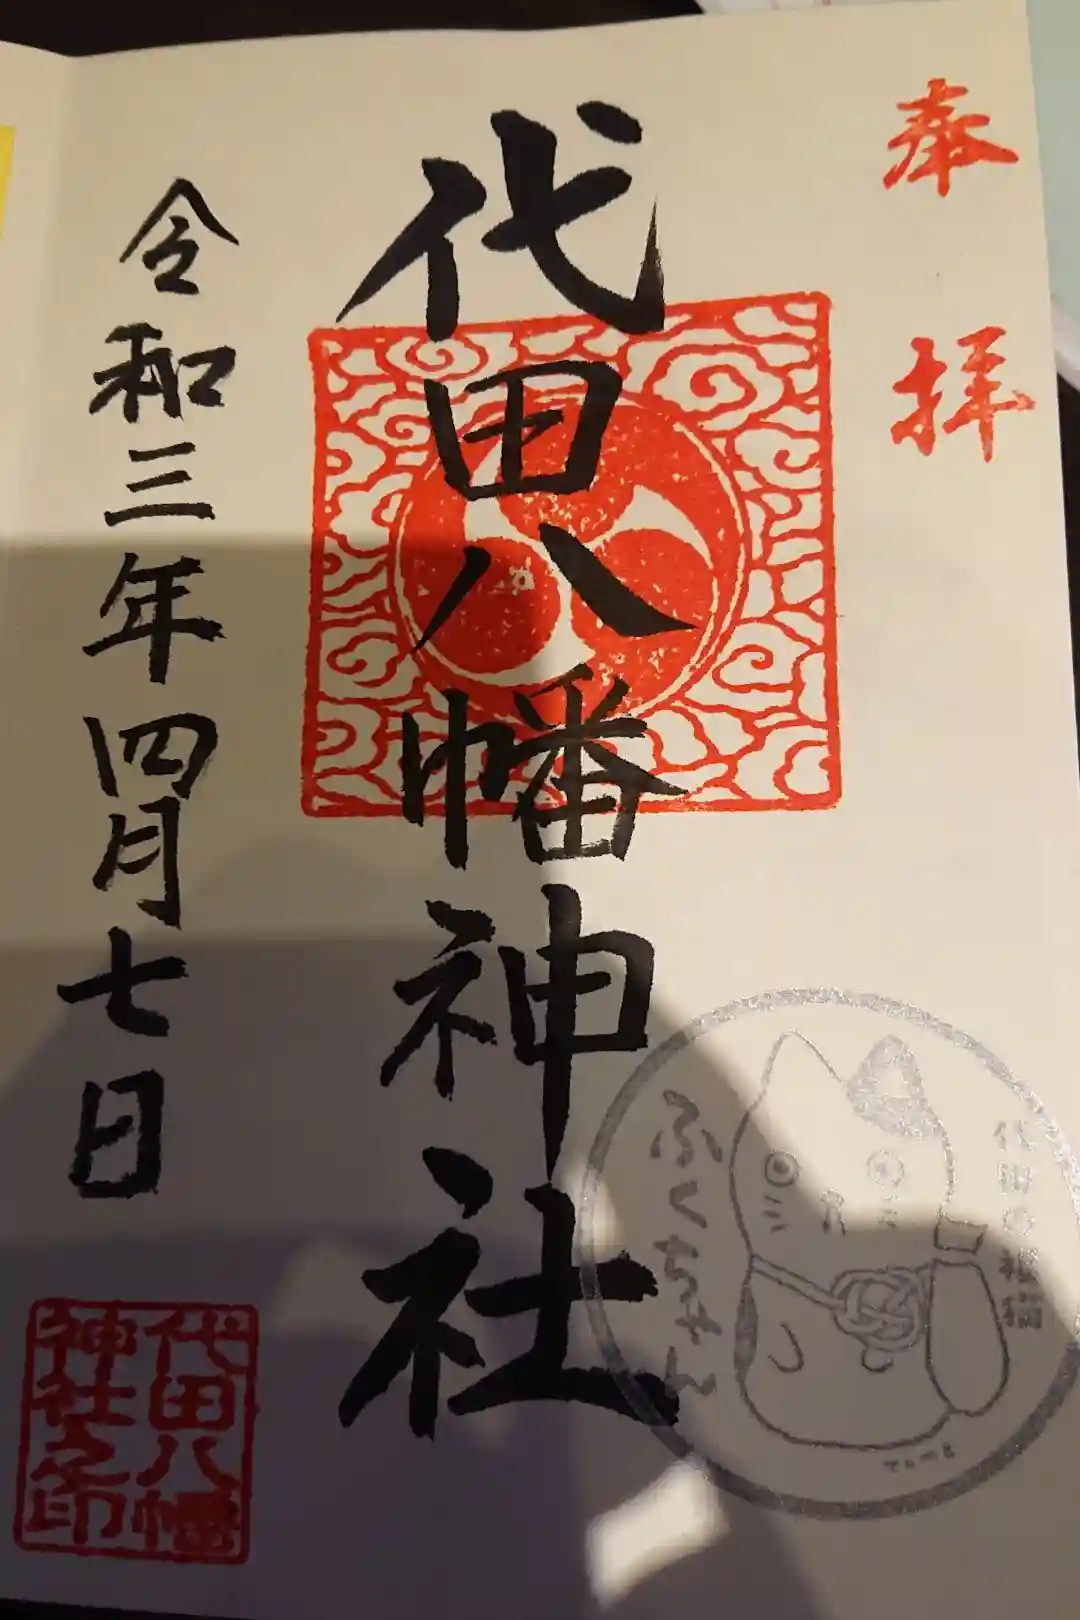 奉拝
代田八幡神社
令和三年四月七日
代田の福猫
ふくちゃん
代田八幡
神社之印